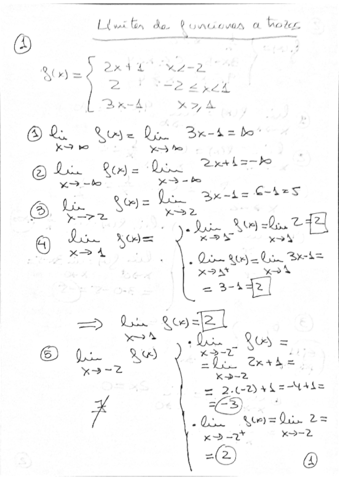 Límites de funciones a trozos
①
f(x) = { 2x+1 x<-2
2 -2≤x<1
3x-1 x≥1
① lim x→∞ f(x) = lim x→∞ 3x-1 = ∞
② lim x→-∞ f(x) = lim x→-∞ 2x+1 = -∞
③ lim x→2 f(x) = lim x→2 3x-1 = 6-1 = 5
④ lim x→1 f(x) =
· lim x→1⁻ f(x) = lim x→1 2 = 2
· lim x→1⁺ f(x) = lim x→1 3x-1 =
= 3-1 = 2
⇒ lim x→1 f(x) = 2
⑤ lim x→-2 f(x)
∄
· lim x→-2⁻ f(x) =
= lim x→-2 2x+1 =
= 2·(-2)+1 = -4+1 =
= -3
· lim x→-2⁺ f(x) = lim x→-2 2 =
= 2
①